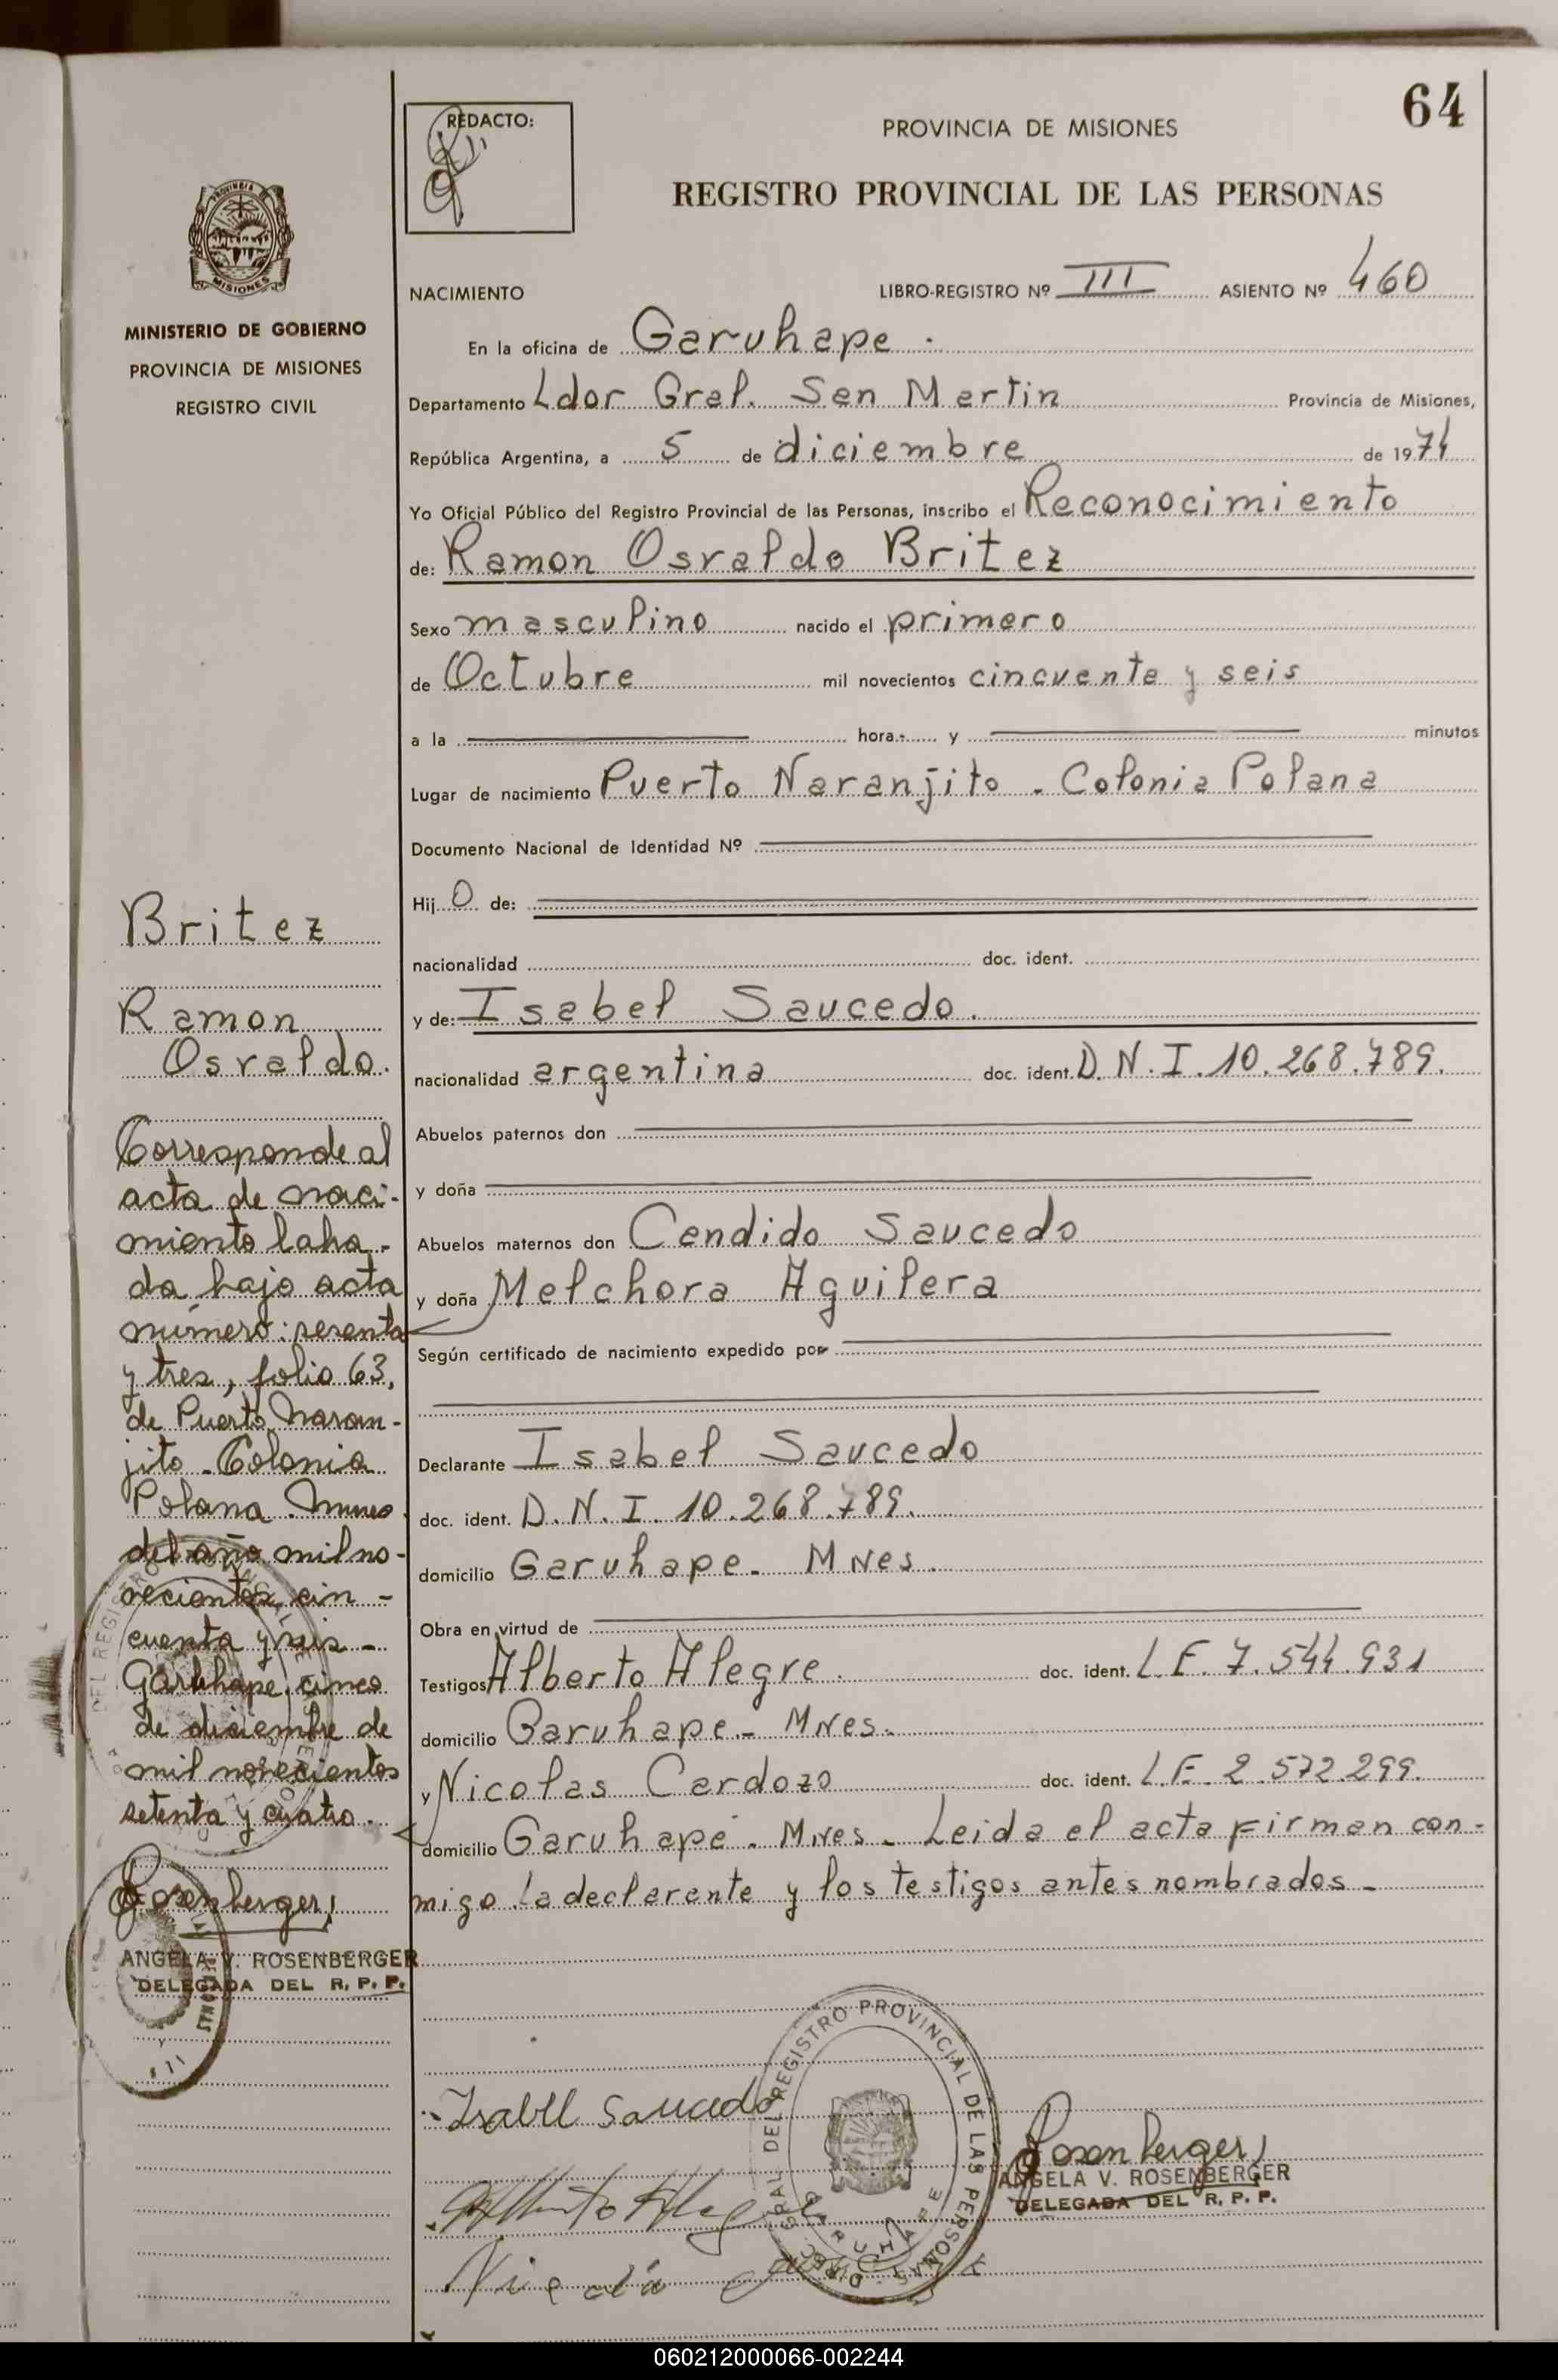 64
REDACTO:
PROVINCIA DE MISIONES
REGISTRO PROVINCIAL DE LAS PERSONAS
PROVINCIA
MISIONES
MINISTERIO DE GOBIERNO
PROVINCIA DE MISIONES
REGISTRO CIVIL
NACIMIENTO LIBRO-REGISTRO Nº III ASIENTO Nº 460
En la oficina de Garuhape.
Departamento Ldor Gral. San Martin Provincia de Misiones,
República Argentina, a 5 de diciembre de 1974
Yo Oficial Público del Registro Provincial de las Personas, inscribo el Reconocimiento
de: Ramon Osvaldo Britez
Sexo masculino nacido el primero
de Octubre mil novecientos cincuenta y seis
a la hora y minutos
Lugar de nacimiento Puerto Naranjito - Colonia Polana
Documento Nacional de Identidad Nº
Hij o de:
nacionalidad doc. ident.
y de: Isabel Saucedo.
nacionalidad argentina doc. ident. D.N.I. 10.268.789.
Abuelos paternos don
y doña
Abuelos maternos don Candido Saucedo
y doña Melchora Aguilera
Según certificado de nacimiento expedido por
Declarante Isabel Saucedo
doc. ident. D.N.I. 10.268.789.
domicilio Garuhape - Mnes.
Obra en virtud de
Testigos Alberto Alegre. doc. ident. L.E. 7.544.931
domicilio Garuhape - Mnes.
y Nicolas Cardozo doc. ident. L.E. 2.572.299.
domicilio Garuhape - Mnes - Leida el acta firman con-
migo la declarante y los testigos antes nombrados -
Britez
Ramon
Osvaldo.
Corresponde al
acta de naci-
miento laba-
da bajo acta
número: sesenta
y tres, folio 63,
de Puerto Naran-
jito - Colonia
Polana
del año mil no-
vecientos cin-
cuenta y seis -
Garuhape, cinco
de diciembre de
mil novecientos
setenta y cuatro.
Rosenberger
ANGELA V. ROSENBERGER
DELEGADA DEL R. P. P.
Isabel Saucedo
Alberto Aleg
DEL REGISTRO PROVINCIAL DE LAS PERSONAS
GARUHAPE
Rosenberger
ANGELA V. ROSENBERGER
DELEGADA DEL R. P. P.
060212000066-002244